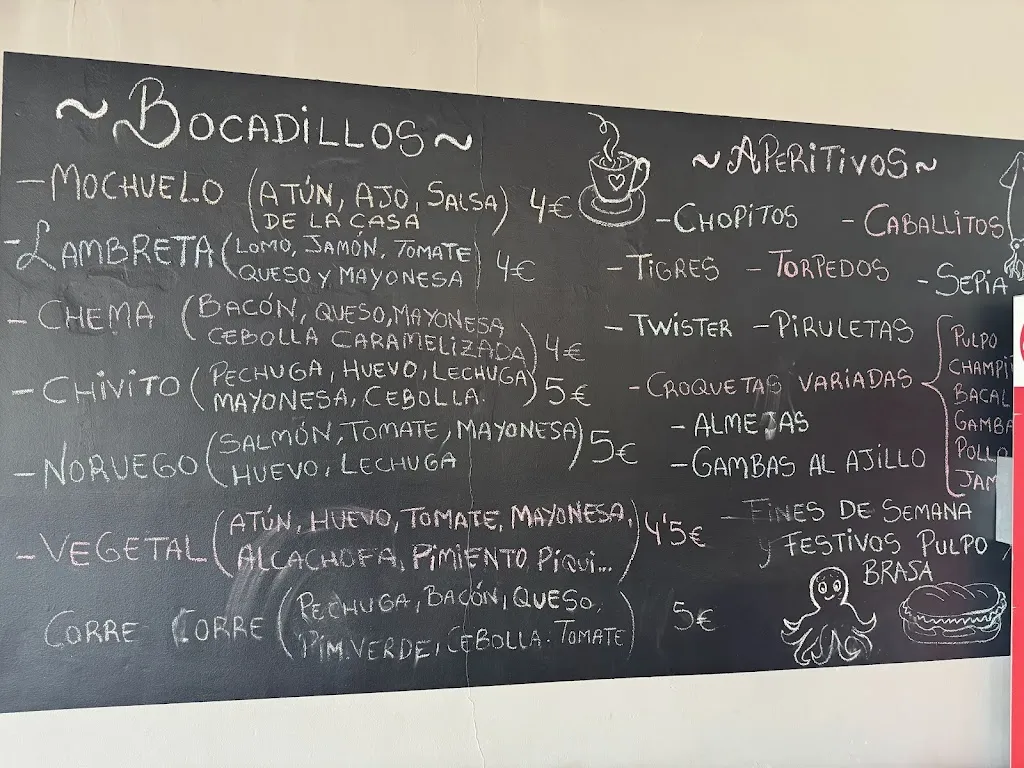 ~ BOCADILLOS ~
- MOCHUELO (ATÚN, AJO, SALSA DE LA CASA) 4€
- LAMBRETA (LOMO, JAMÓN, TOMATE QUESO Y MAYONESA) 4€
- CHEMA (BACÓN, QUESO, MAYONESA CEBOLLA CARAMELIZADA) 4€
- CHIVITO (PECHUGA, HUEVO, LECHUGA MAYONESA, CEBOLLA.) 5€
- NORUEGO (SALMÓN, TOMATE, MAYONESA HUEVO, LECHUGA) 5€
- VEGETAL (ATÚN, HUEVO, TOMATE, MAYONESA, ALCACHOFA, PIMIENTO PIQUI...) 4'5€
CORRE CORRE (PECHUGA, BACÓN, QUESO, PIM. VERDE, CEBOLLA. TOMATE) 5€
~ APERITIVOS ~
- CHOPITOS - CABALLITOS
- TIGRES - TORPEDOS - SEPIA
- TWISTER - PIRULETAS
- CROQUETAS VARIADAS {
PULPO
CHAMPI
BACAL
GAMBA
POLLO
JAM
- ALMEJAS
- GAMBAS AL AJILLO
- FINES DE SEMANA
y FESTIVOS PULPO
BRASA